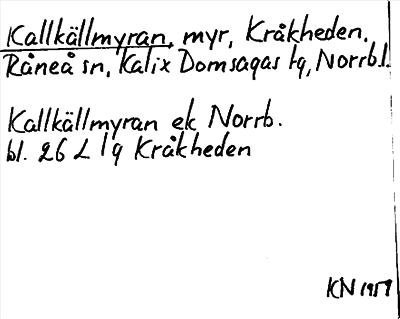 Kallkällmyran, myr, Kråkheden.
Råneå sn, Kalix Domsagas tg, Norrb.l.
Kallkällmyran ek Norrb.
bl. 26 L 1 q Kråkheden
KN 1959